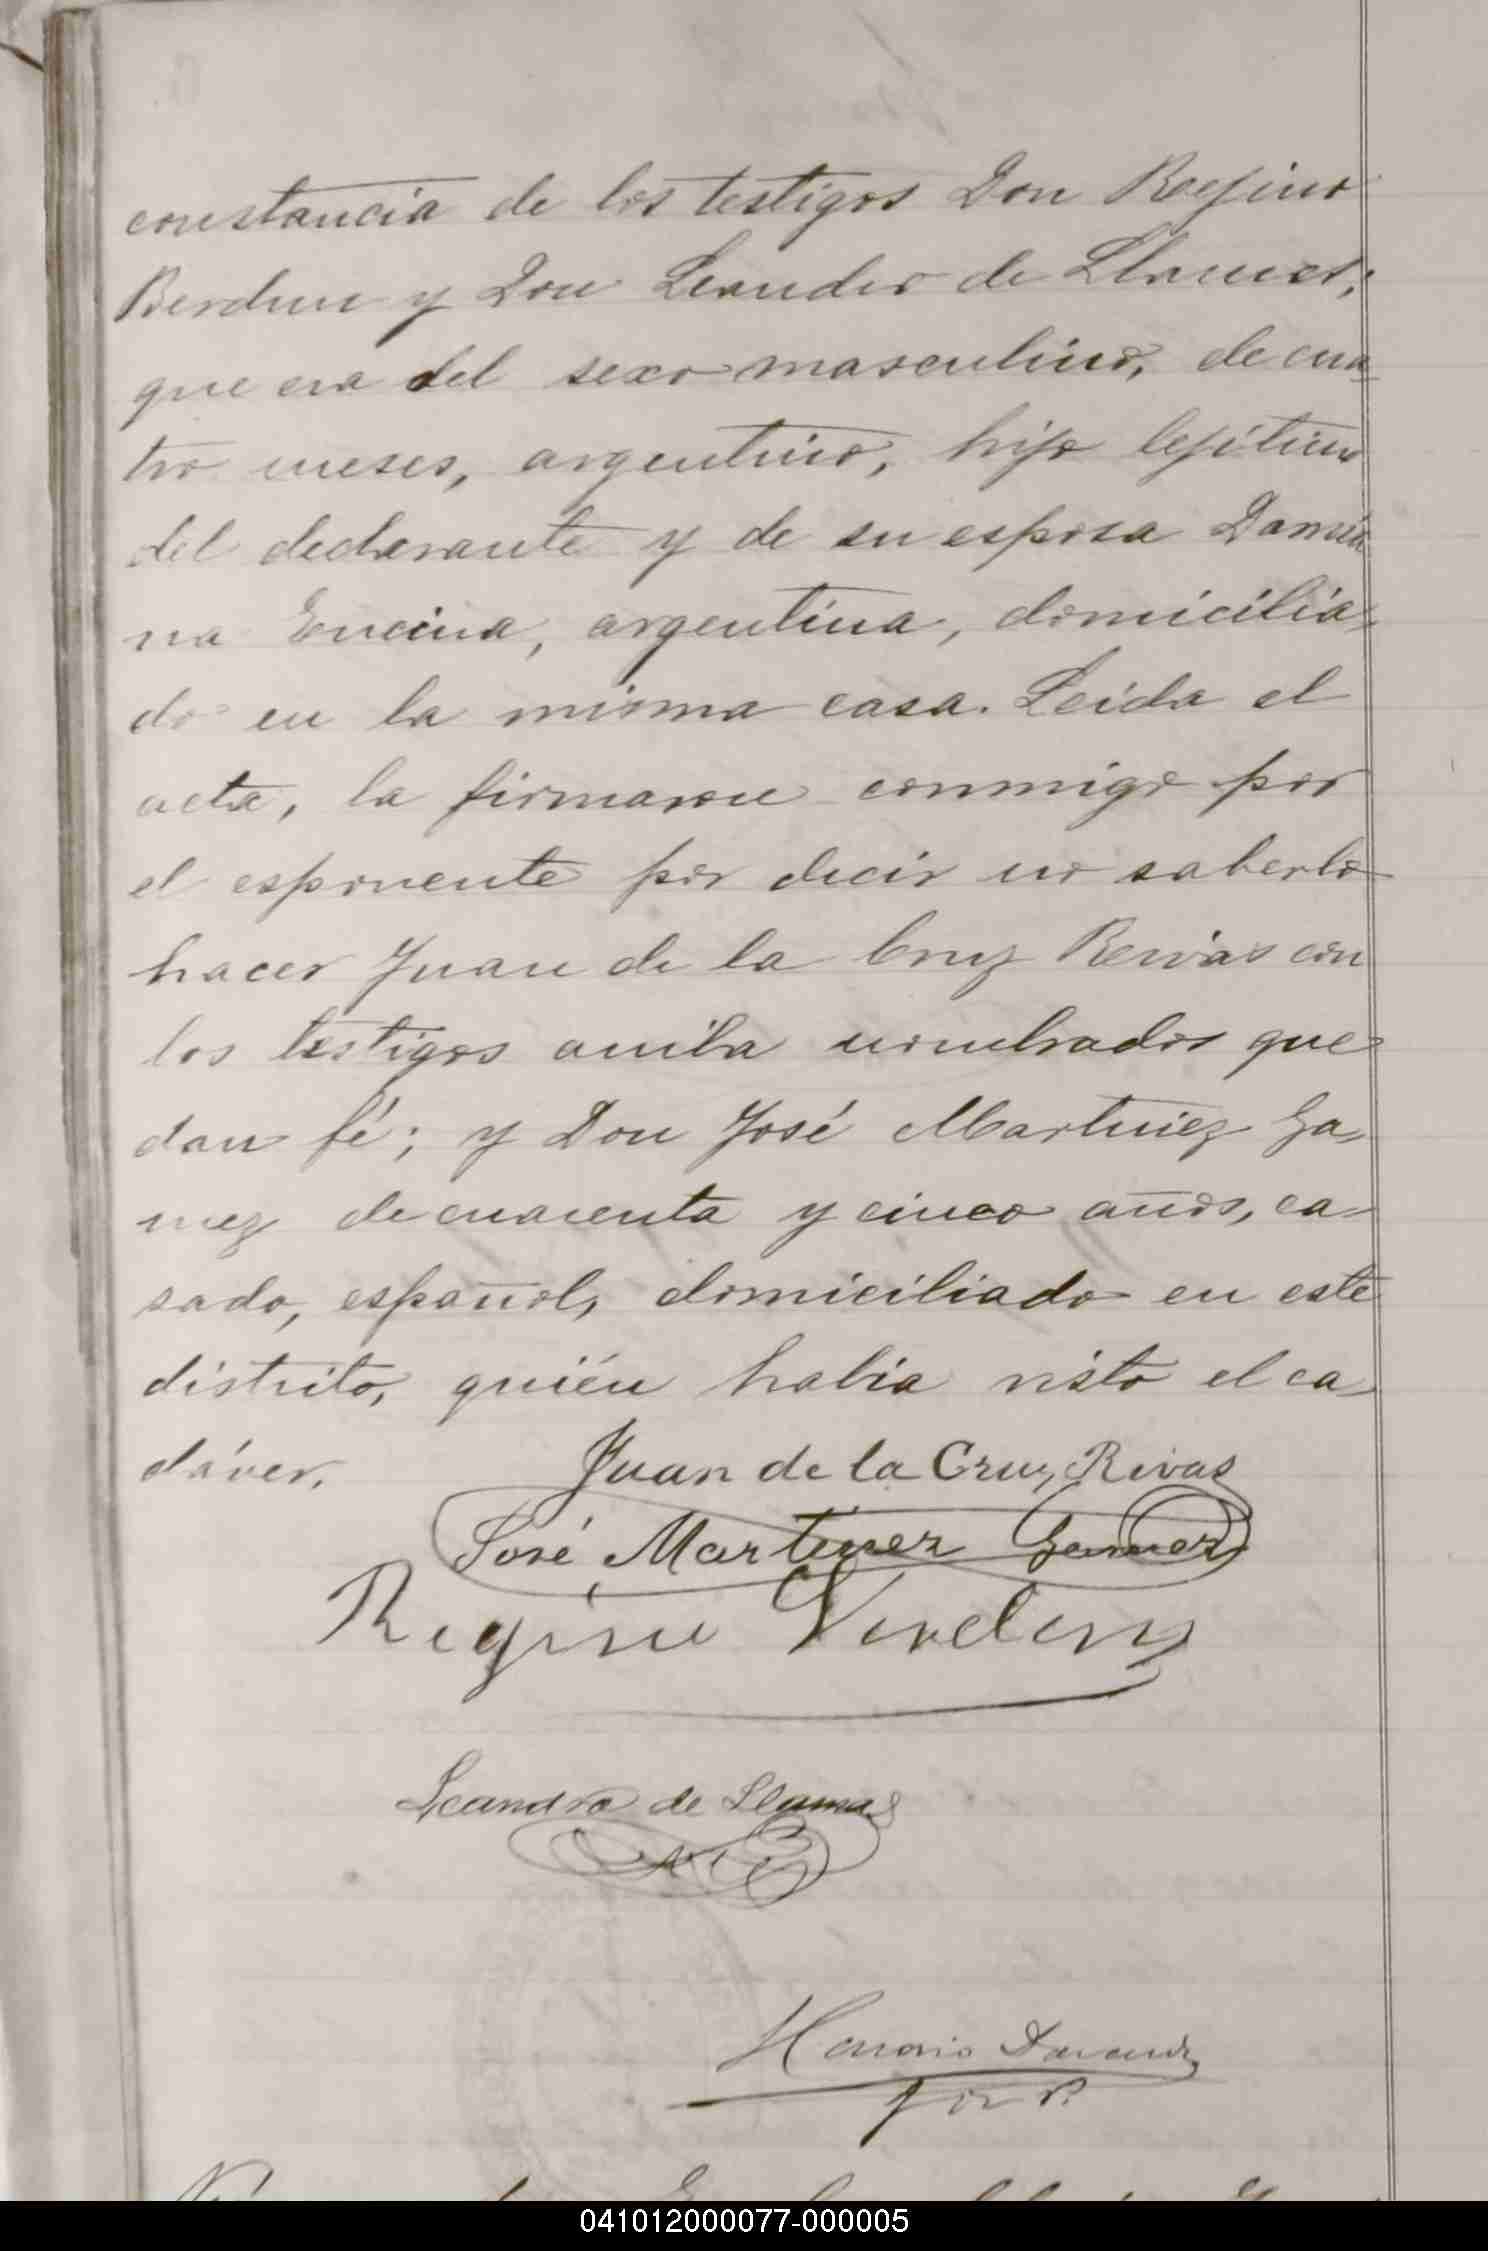 constancia de los testigos Don Regino
Berdun y Don Leandro de Llamas;
que era del sexo masculino, de cua-
tro meses, argentino, hijo lejítimo
del declarante y de su esposa Damia
na Encina, argentina, domicilia-
do en la misma casa. Leida el
acta, la firmaron conmigo por
el esponente por decir no saberlo
hacer Juan de la Cruz Rivas con
los testigos arriba nombrados que
dan fé; y Don José Martinez Ga-
mez de cuarenta y cinco años, ca-
sado, español, domiciliado en este
distrito, quién habia visto el ca-
dáver.
Juan de la Cruz Rivas
José Martinez Gamez
Regino Verdun
Leandro de Llamas
Honorio
041012000077-000005